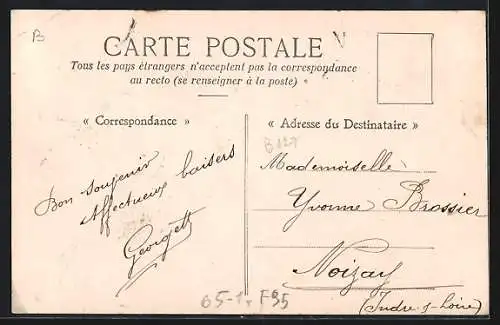 B
CARTE POSTALE
Tous les pays étrangers n'acceptent pas la correspondance
au recto (se renseigner à la poste)
« Correspondance »
« Adresse du Destinataire »
Bon souvenir
Affectueux baisers
Georgett
Mademoiselle
Yvonne Brossier
Noizay
(Indre-s-Loire)
F35